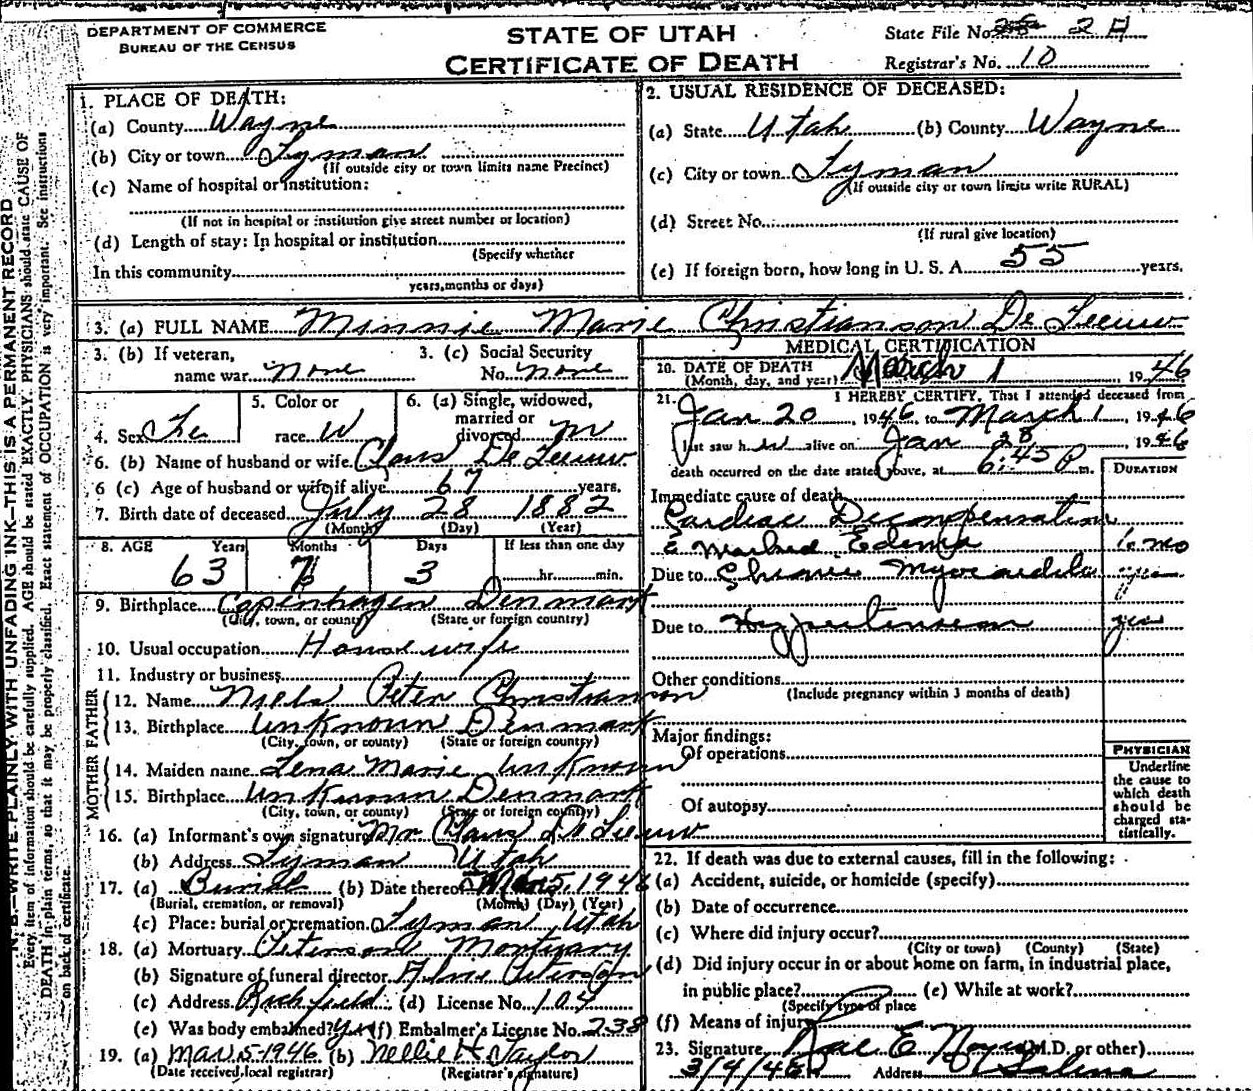 DEPARTMENT OF COMMERCE
BUREAU OF THE CENSUS
STATE OF UTAH
CERTIFICATE OF DEATH
State File No. 2
Registrar's No. 10
N. B.—WRITE PLAINLY, WITH UNFADING INK—THIS IS A PERMANENT RECORD
Every item of information should be carefully supplied. AGE should be stated EXACTLY. PHYSICIANS should state CAUSE OF
DEATH in plain terms, so that it may be properly classified. Exact statement of OCCUPATION is very important. See instructions
on back of certificate.
1. PLACE OF DEATH:
(a) County Wayne
(b) City or town Lyman
(If outside city or town limits name Precinct)
(c) Name of hospital or institution:
(If not in hospital or institution give street number or location)
(d) Length of stay: In hospital or institution
(Specify whether
In this community
years, months or days)
2. USUAL RESIDENCE OF DECEASED:
(a) State Utah (b) County Wayne
(c) City or town Lyman
(If outside city or town limits write RURAL)
(d) Street No.
(If rural give location)
(e) If foreign born, how long in U. S. A. 55 years.
3. (a) FULL NAME Minnie Marie Christianson De Leeuw
3. (b) If veteran, 3. (c) Social Security
name war none No. none
5. Color or 6. (a) Single, widowed,
married or
4. Sex Fe race W divorced m
6. (b) Name of husband or wife Claus De Leeuw
6 (c) Age of husband or wife if alive 67 years.
7. Birth date of deceased July 28 1882
(Month) (Day) (Year)
8. AGE Years Months Days If less than one day
63 7 3 hr. min.
9. Birthplace Copenhagen Denmark
(City, town, or county) (State or foreign country)
10. Usual occupation Housewife
11. Industry or business
FATHER
12. Name Niels Peter Christianson
13. Birthplace unknown Denmark
(City, town, or county) (State or foreign country)
MOTHER
14. Maiden name Lena Marie unknown
15. Birthplace unknown Denmark
(City, town, or county) (State or foreign country)
16. (a) Informant's own signature Mr Claus De Leeuw
(b) Address Lyman Utah
17. (a) Burial (b) Date thereof Mar 5, 1946
(Burial, cremation, or removal) (Month) (Day) (Year)
(c) Place: burial or cremation Lyman Utah
18. (a) Mortuary Petersons Mortuary
(b) Signature of funeral director Peterson
(c) Address Richfield (d) License No. 104
(e) Was body embalmed? yes (f) Embalmer's License No. 238
19. (a) Mar 5-1946 (b) Nellie H Taylor
(Date received, local registrar) (Registrar's signature)
MEDICAL CERTIFICATION
20. DATE OF DEATH March 1 1946
(Month, day, and year)
21. I HEREBY CERTIFY, That I attended deceased from
Jan 20, 1946 to March 1, 1946
last saw h alive on Jan 28, 1946
death occurred on the date stated above, at 6:45 P m.
DURATION
Immediate cause of death
Cardiac Decompensation
c Marked Edema mo
Due to Chronic Myocarditis yrs
Due to Hypertension yrs
Other conditions
(Include pregnancy within 3 months of death)
Major findings:
Of operations
Of autopsy
PHYSICIAN
Underline
the cause to
which death
should be
charged sta-
tistically.
22. If death was due to external causes, fill in the following:
(a) Accident, suicide, or homicide (specify)
(b) Date of occurrence
(c) Where did injury occur?
(City or town) (County) (State)
(d) Did injury occur in or about home on farm, in industrial place,
in public place? (e) While at work?
(Specify type of place
(f) Means of injury
23. Signature Rae E Noyes (M.D. or other)
3/4/46 Address Salina